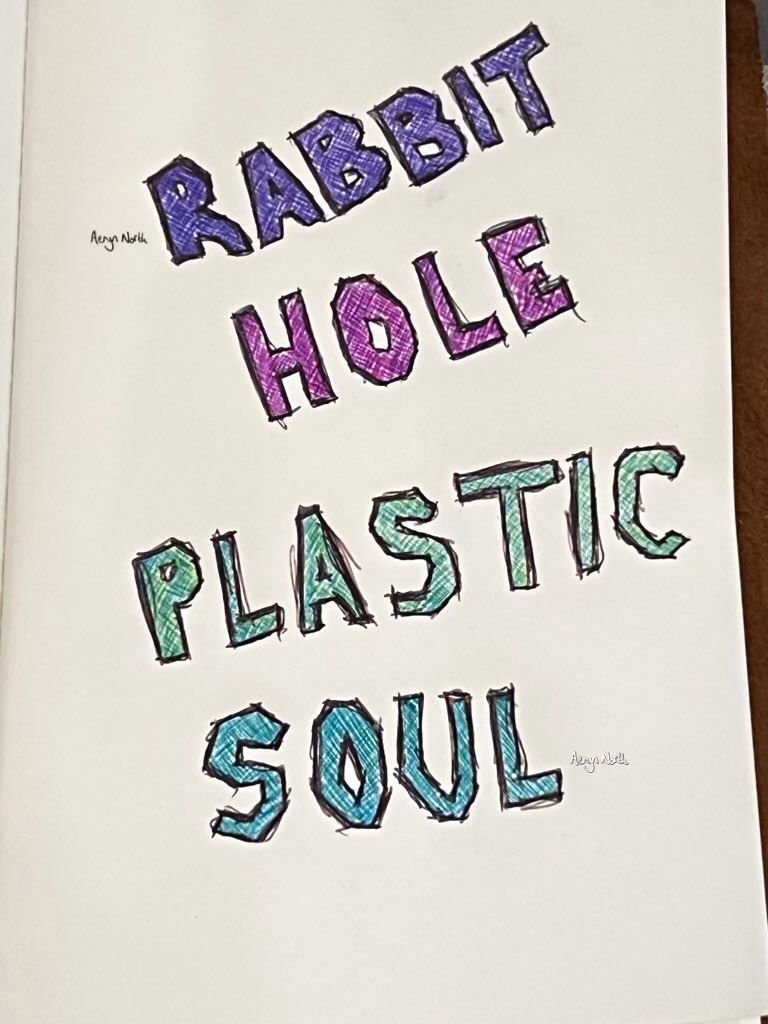 RABBIT
Aeryn North
HOLE
PLASTIC
SOUL
Aeryn North